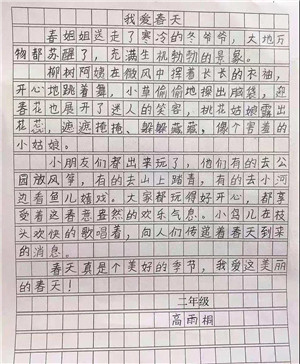 我爱春天
春姐姐送走了寒冷的冬爷爷，大地万
物都苏醒了，充满生机勃勃的景象。
柳树阿姨在微风中挥着长长的衣袖，
开心地跳着舞，小草偷偷地探出脑袋，迎
春花也展开了迷人的笑容，桃花姑娘露出
花蕊，遮遮掩掩、躲躲藏藏，像个害羞的
小姑娘。
小朋友们都出来玩了，他们有的去公
园放风筝，有的去山上踏青，有的去小河
边看鱼儿嬉戏。大家都玩得好开心，都享
受着这春意盎然的欢乐气息。小鸟儿在枝
头欢快的歌唱着，向人们传递着春天到来
的消息。
春天真是个美好的季节，我爱这美丽
的春天！
二年级
高雨桐